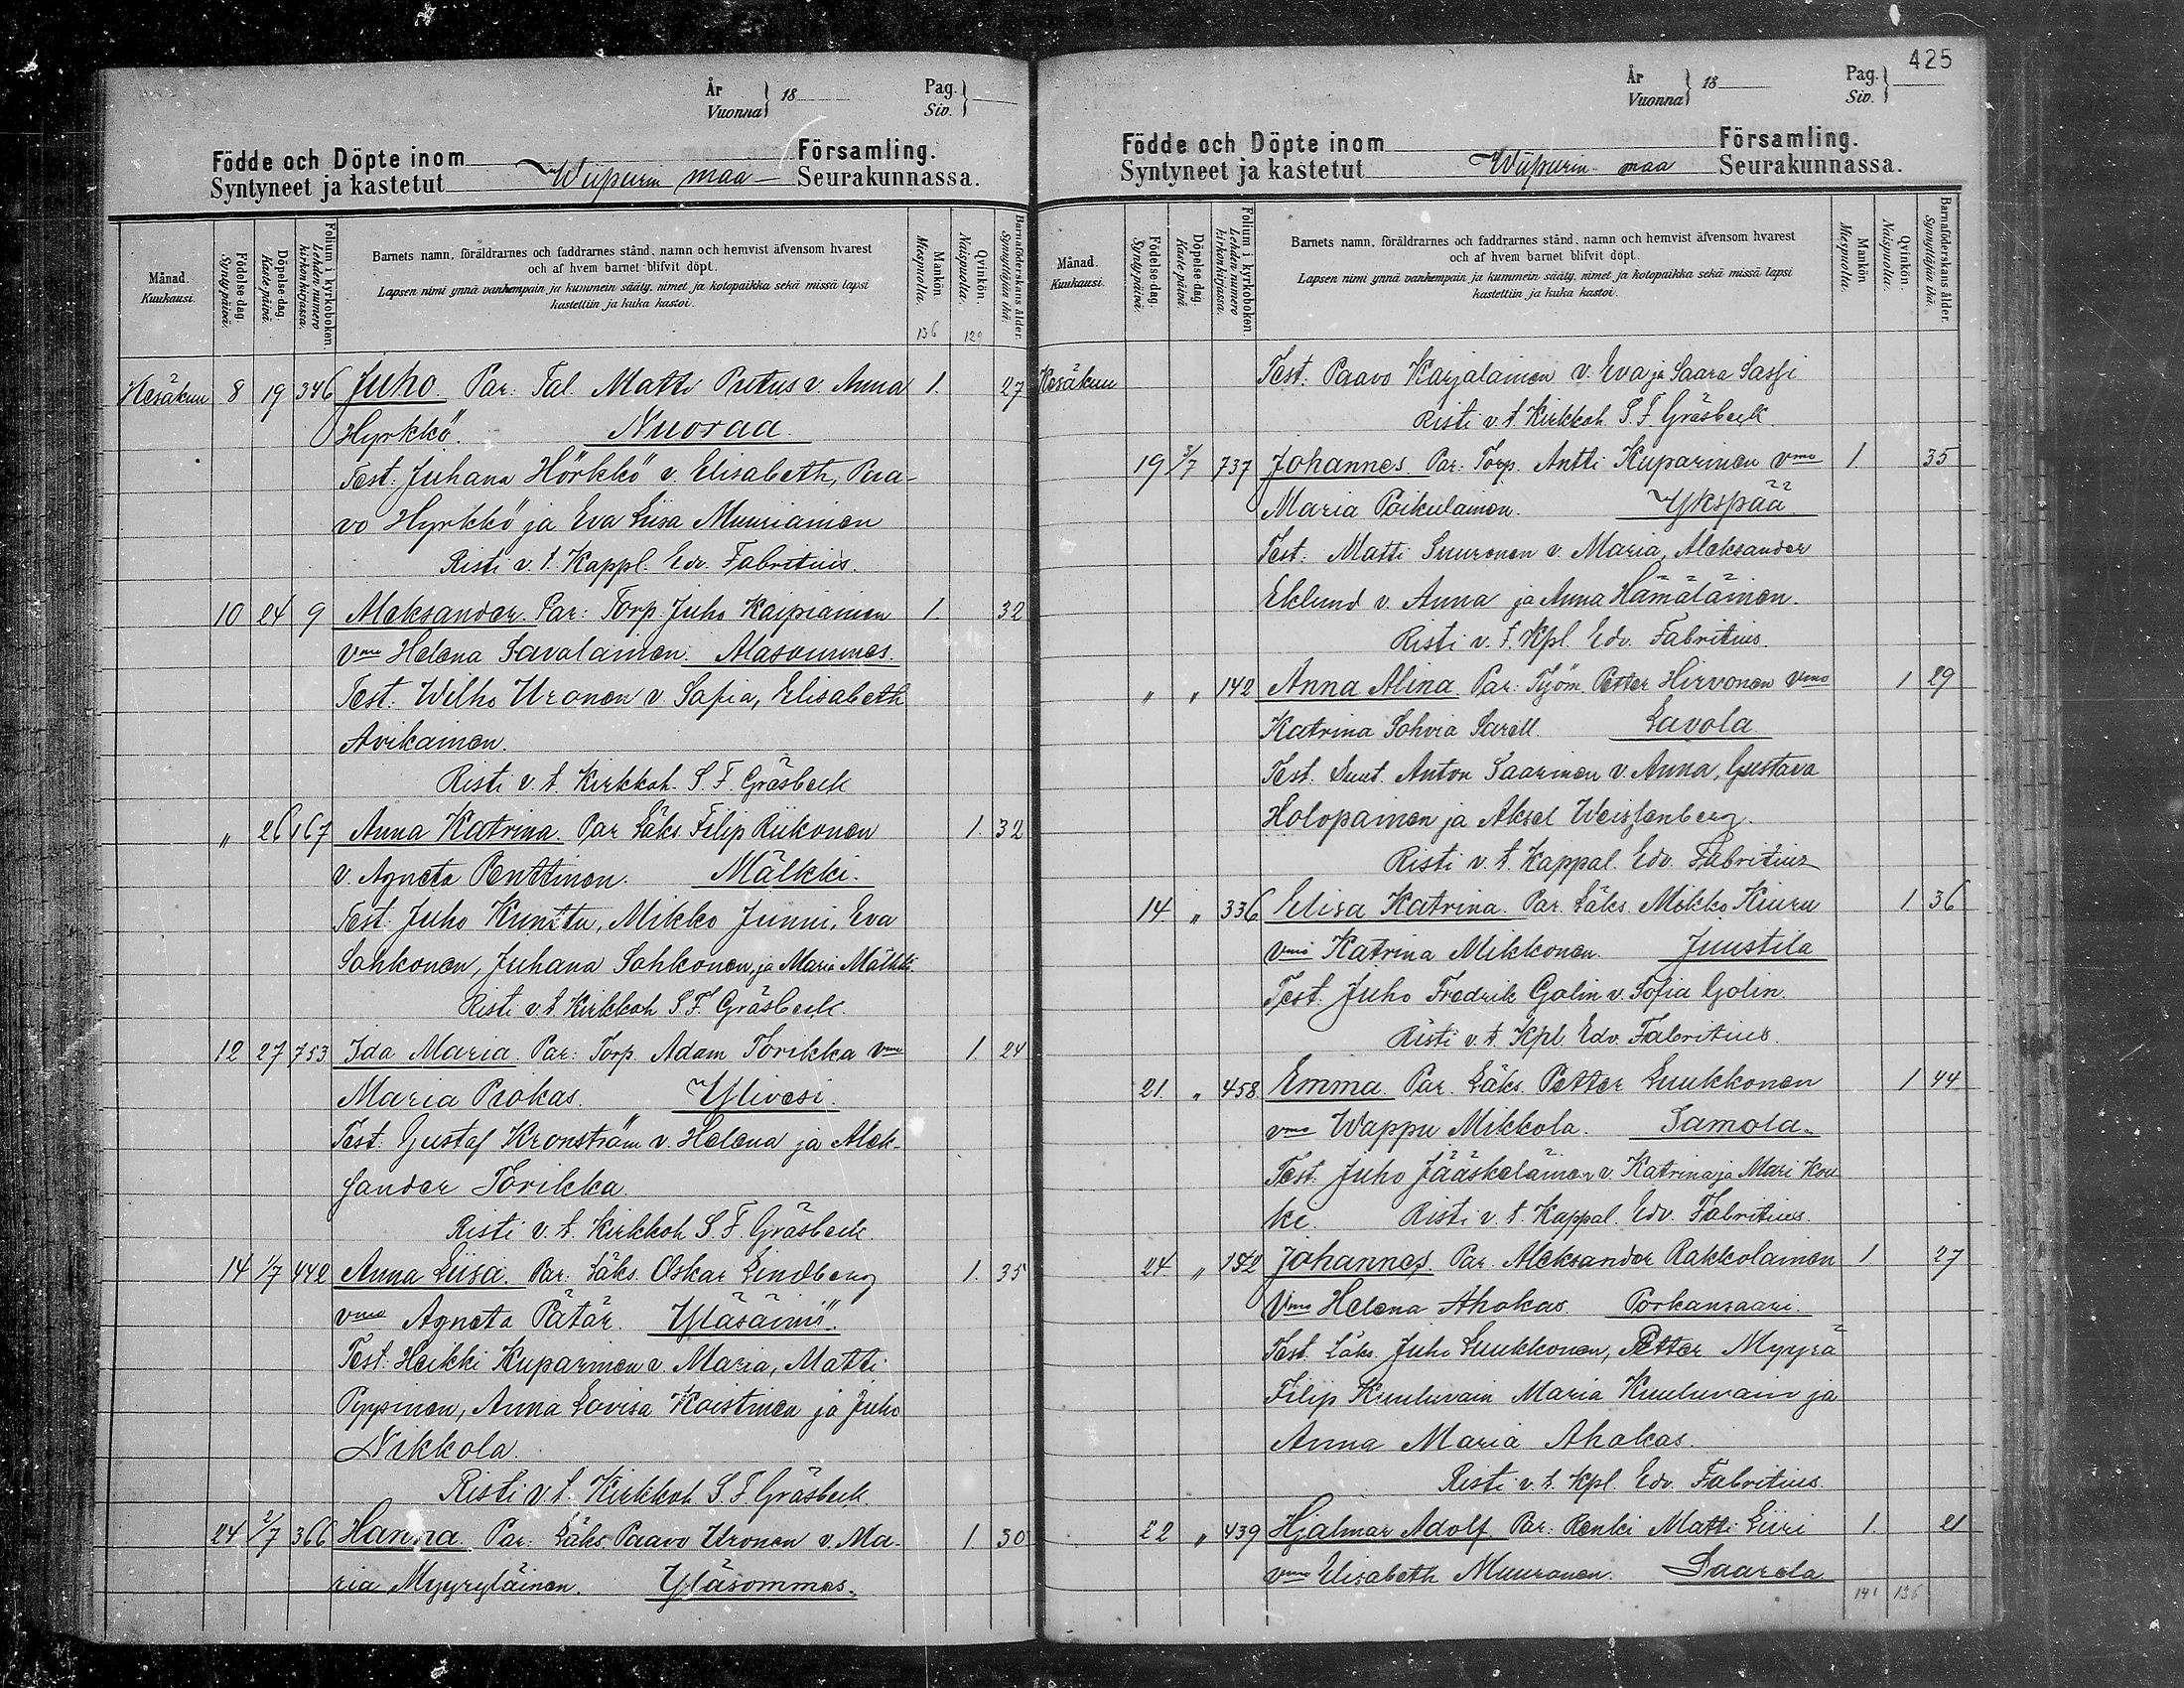 År
Vuonna } 18
Pag.
Siv. }
Födde och Döpte inom Församling.
Syntyneet ja kastetut Wiipurin maa Seurakunnassa.
Månad.
Kuukausi.
Födelse-dag.
Synty-päivä.
Döpelse-dag.
Kaste-päivä.
Folium i kyrkoboken.
Lehden numero kirkonkirjassa.
Barnets namn, föräldrarnes och faddrarnes stånd, namn och hemvist äfvensom hvarest
och af hvem barnet blifvit döpt.
Lapsen nimi ynnä vanhempain ja kummein sääty, nimet ja kotopaikka sekä missä lapsi
kastettiin ja kuka kastoi.
Mankön
Miespuolta.
Qvinkön.
Naispuolta.
Barnaföderskans ålder.
Synnyttäjän ikä.
136 129
Kesäkuu 8 19 346 Juho. Par: Tal. Matti Pretus v. Anna 1. 27
Hyrkkö. Nuoraa.
Test: Juhana Hörkkö v. Elisabeth, Paa-
vo Hyrkkö ja Eva Liisa Muuriainen
Risti v. t. Kappl. Edv. Fabritius.
10 24 9 Aleksander. Par: Torp. Juho Kaipiainen 1. 32
vmo Helena Savolainen. Alasommes.
Test: Wilho Uronen v. Sofia, Elisabeth
Avikainen.
Risti v. t. Kirkkoh. S. F. Gräsbeck
" 26 167 Anna Katrina. Par Läks. Filip Riikonen 1. 32
v. Agneta Penttinen. Mälkki.
Test: Juho Kunttu, Mikko Junni, Eva
Sohkonen, Juhana Sohkonen, ja Maria Mälkki.
Risti v. t. Kirkkoh S F Gräsbeck.
12 27 753 Ida Maria. Par: Torp. Adam Torikka vmo 1 24
Maria Prokas. Ylivesi.
Test: Gustaf Kronström v. Helena ja Alek-
sander Torikka.
Risti v. t. Kirkkoh S. F. Gräsbeck.
14 1/7 442 Anna Liisa. Par: Läks. Oskar Lindberg 1. 35
vmo Agneta Pätär. Yläsäiniö.
Test: Heikki Kuparinen v. Maria, Matti
Pyppinen, Anna Lovisa Koistinen ja Juho
Nikkola.
Risti v. t. Kirkkoh S. F. Gräsbeck.
24 2/7 366 Hanna. Par: Läks. Paavo Uronen v. Ma- 1. 30
ria Myyryläinen. Yläsommes.
425
År
Vuonna } 18
Pag.
Siv. }
Födde och Döpte inom Församling.
Syntyneet ja kastetut Wiipurin maa Seurakunnassa.
Månad.
Kuukausi.
Födelse-dag.
Synty-päivä.
Döpelse-dag.
Kaste-päivä.
Folium i kyrkoboken.
Lehden numero kirkonkirjassa.
Barnets namn, föräldrarnes och faddrarnes stånd, namn och hemvist äfvensom hvarest
och af hvem barnet blifvit döpt.
Lapsen nimi ynnä vanhempain ja kummein sääty, nimet ja kotopaikka sekä missä lapsi
kastettiin ja kuka kastoi.
Mankön
Miespuolta.
Qvinkön.
Naispuolta.
Barnaföderskans ålder.
Synnyttäjän ikä.
Kesäkuu Test: Paavo Karjalainen v. Eva ja Saara Sassi
Risti v. t. Kirkkoh. S. F. Gräsbeck.
19 3/7 737 Johannes. Par: Torp. Antti Kuparinen vmo 1. 35
Maria Poikulainen. Ykspää
Test: Matti Suuronen v. Maria, Aleksander
Eklund v. Anna ja Anna Hämäläinen.
Risti v. t. Kpl. Edv. Fabritius.
" " 142 Anna Alina. Par: Työm. Petter Hirvonen vmo 1 29
Katrina Sohvia Sarell. Lavola
Test. Suut. Anton Saarinen v. Anna, Gustava
Holopainen ja Aksel Weislenberg.
Risti v. t. Kappal. Edv. Fabritius
14. " 336 Elisa Katrina. Par. Läks. Mikko Kiuru 1. 36
vmo Katrina Mikkonen. Juustila
Test. Juho Fredrik Golin v. Sofia Golin.
Risti v. t. Kpl. Edv. Fabritius.
21. " 458 Emma. Par. Läks. Petter Luukkonen 1 44
vmo Wappu Mikkola. Samola.
Test. Juho Jääskeläinen v. Katrina ja Mari Kou-
ki. Risti v. t. Kappal. Edv. Fabritius.
24. " 142 Johannes. Par. Aleksander Rakkolainen 1 27
vmo Helena Ahokas. Porkansaari.
Test. Läks. Juho Luukkonen, Petter Myyrä
Filip Kuuluvain Maria Kuuluvain ja
Anna Maria Ahokas.
Risti v. t. Kpl. Edv. Fabritius.
22 " 439 Hjalmar Adolf. Par: Renki Matti Liiri 1. 21
vmo Elisabeth Muuronen. Saarela
141 136